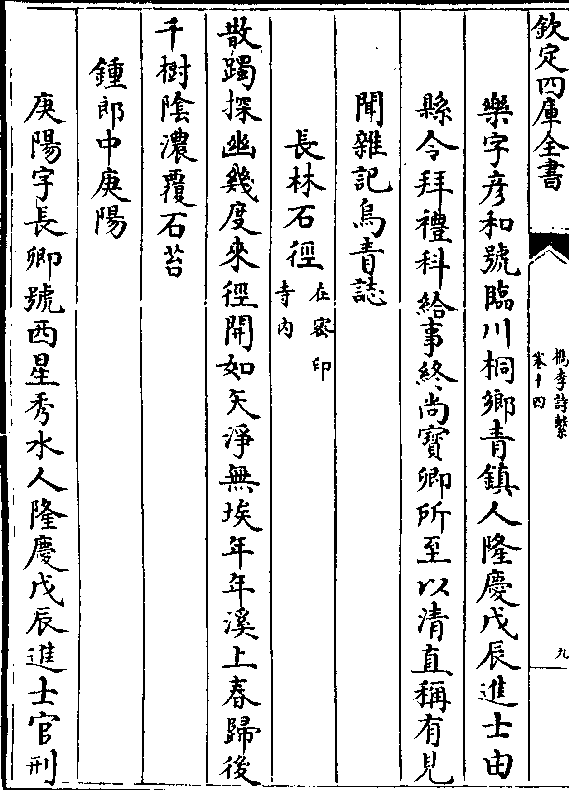 欽定四庫全書
檇李詩繫
卷十四
九
樂字彥和號臨川桐鄉青鎮人隆慶戊辰進士由
縣令拜禮科給事終尚寶卿所至以清直稱有見
聞雜記烏青誌
長林石徑在密印寺內
散躅探幽幾度來徑開如矢淨無埃年年溪上春歸後
千樹陰濃覆石苔
鍾郎中庚陽
庚陽字長卿號西星秀水人隆慶戊辰進士官刑